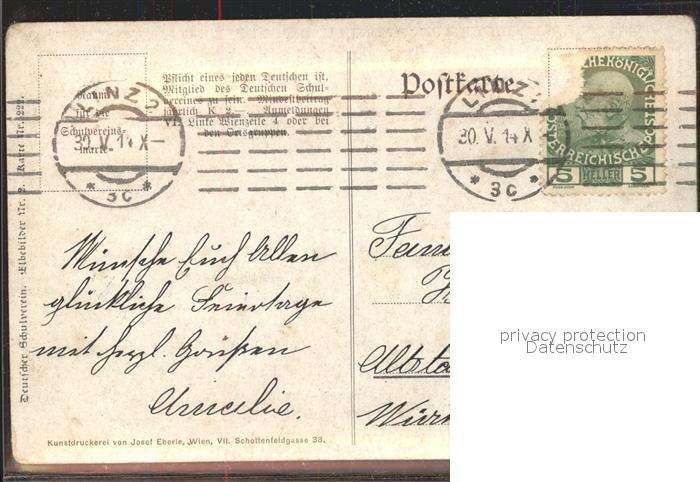 Deutscher Schulverein. Elbebilder Nr. 2. Karte Nr. 222.
Raum
für die
Schulvereins-
marke
Pflicht eines jeden Deutschen ist,
Mitglied des Deutschen Schul-
vereines zu sein. Mindestbeitrag
jährlich K 2.—. Anmeldungen
VI. Linke Wienzeile 4 oder bei
den Ortsgruppen.
LINZ 2
30. V. 14 X
* 3c *
Postkarte
LINZ
30. V. 14 X
* 3c *
ÖSTERREICHISCHE
5 HELLER 5
Wünsche Euch Allen
glückliche Feiertage
mit herzl. Grüßen
Amalie.
Fam
Altsta
Kunstdruckerei von Josef Eberle, Wien, VII. Schottenfeldgasse 38.
privacy protection
Datenschutz